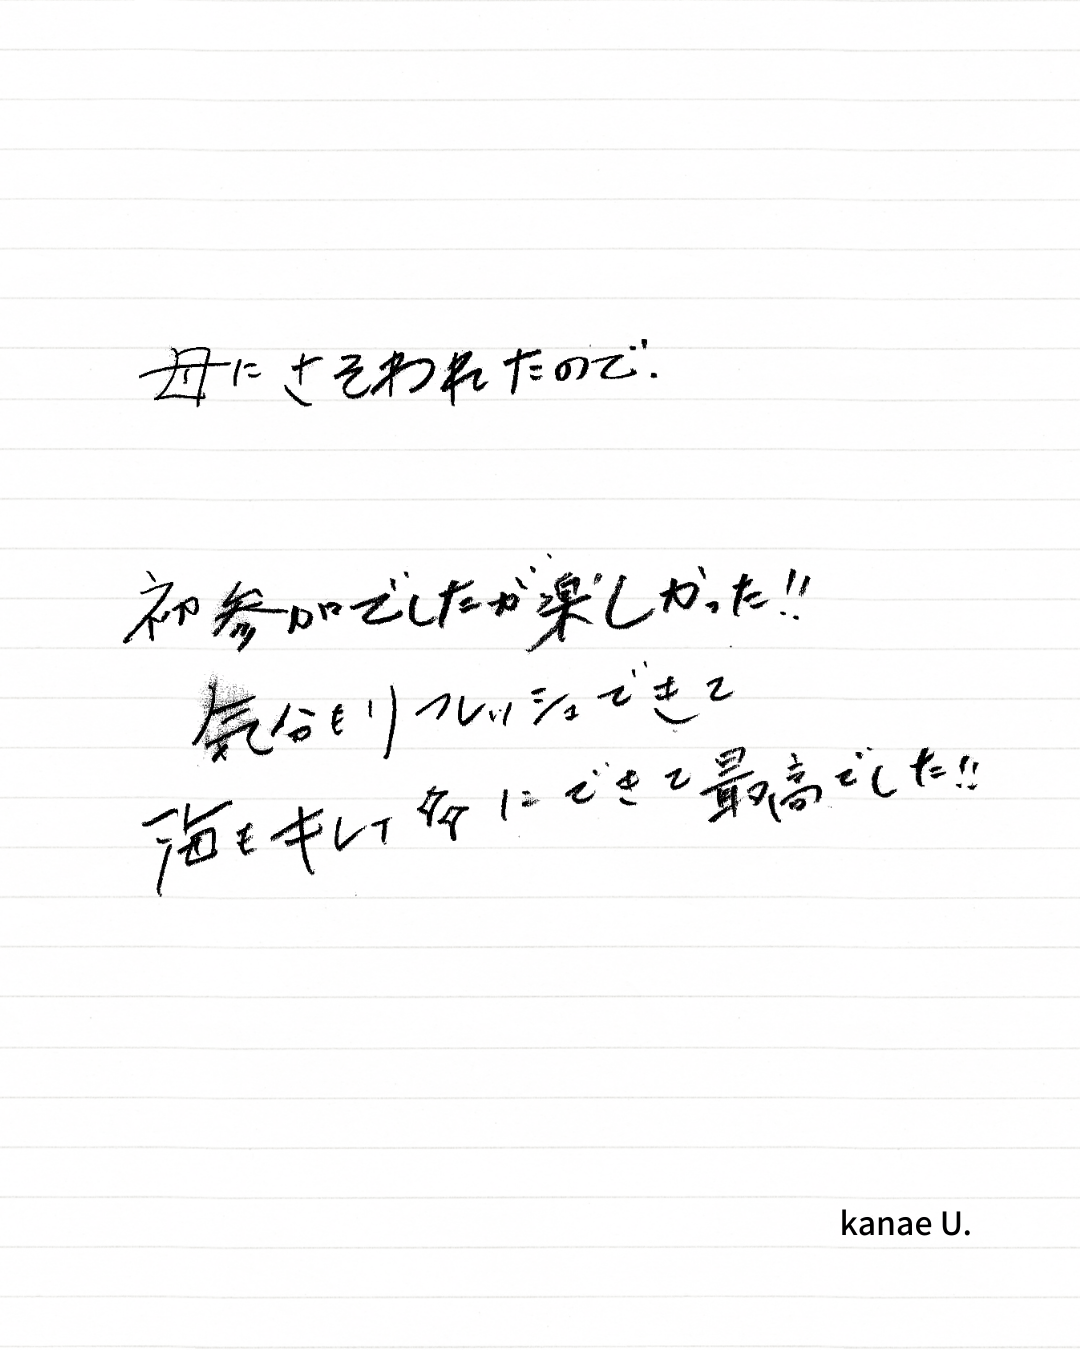 母にさそわれたので.
初参加でしたが楽しかった!!
気分もリフレッシュできて
海もキレイにできて最高でした!!
kanae U.